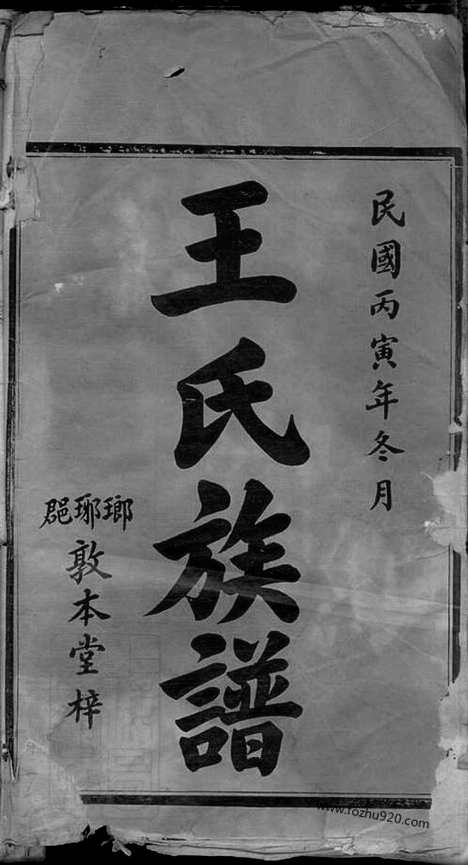 民國丙寅年冬月
王氏族譜
瑯琊郡
敦本堂梓
www.fozhu920.com